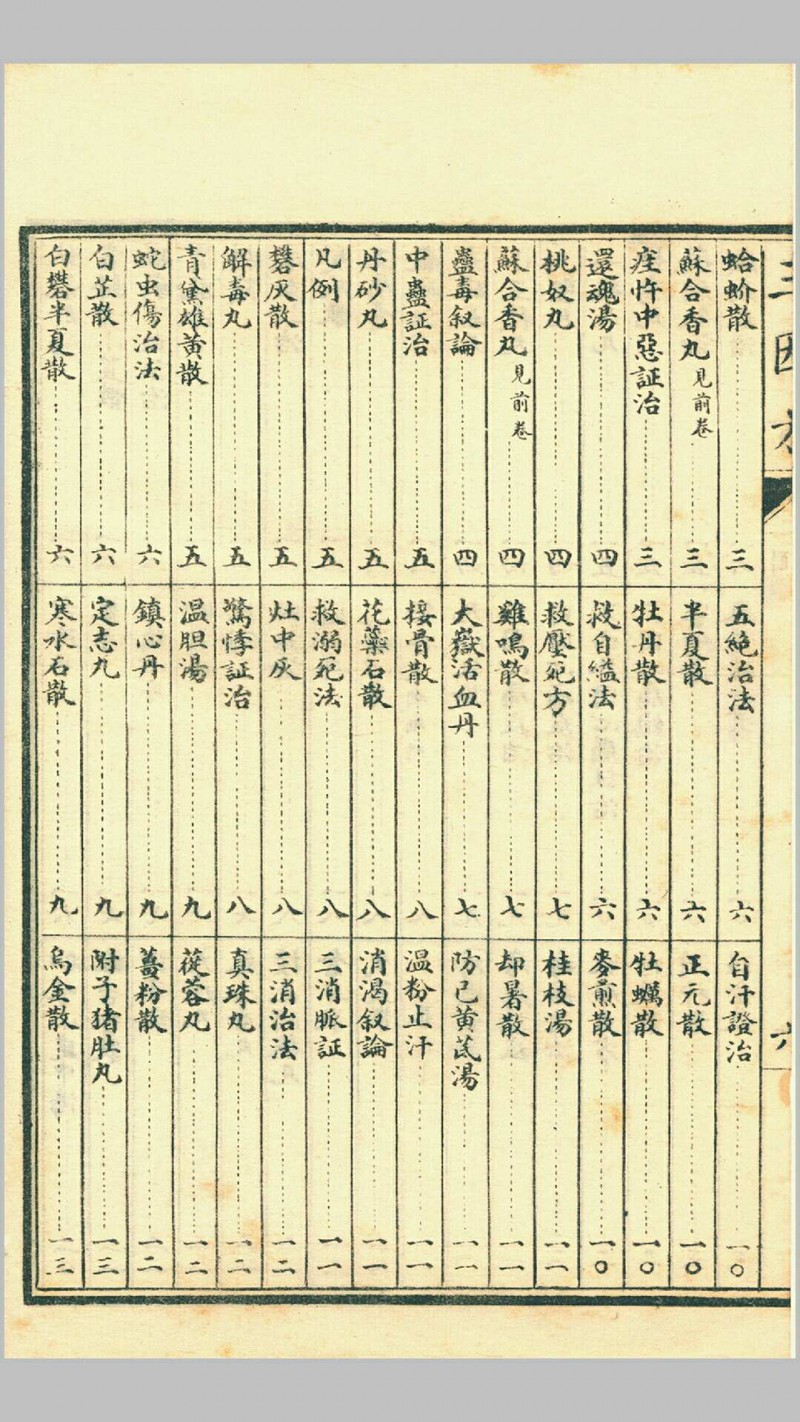 三因方
六
蛤蚧散 三
蘇合香丸 見前卷 三
疰忤中惡証治 三
還魂湯 四
桃奴丸 四
蘇合香丸 見前卷 四
蠱毒叙論 四
中蠱証治 五
丹砂丸 五
凡例 五
礬灰散 五
解毒丸 五
青黛雄黃散 五
蛇虫傷治法 六
白芷散 六
白礬半夏散 六
五絶治法 六
半夏散 六
牡丹散 六
救自縊法 六
救壓死方 七
雞鳴散 七
大嶽活血丹 七
接骨散 八
花藥石散 八
救溺死法 八
灶中灰 八
驚悸証治 八
温胆湯 九
鎮心丹 九
定志丸 九
寒水石散 九
自汗證治 一〇
正元散 一〇
牡蠣散 一〇
麥煎散 一〇
桂枝湯 一一
却暑散 一一
防已黄茋湯 一一
温粉止汗 一一
消渴叙論 一一
三消脈証 一一
三消治法 一二
真珠丸 一二
蓯蓉丸 一二
薑粉散 一二
附子猪肚丸 一三
烏金散 一三